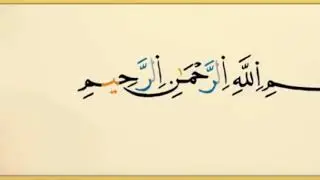 ـمِ اللَّهِ الرَّحْمَٰنِ الرَّحِيمِ